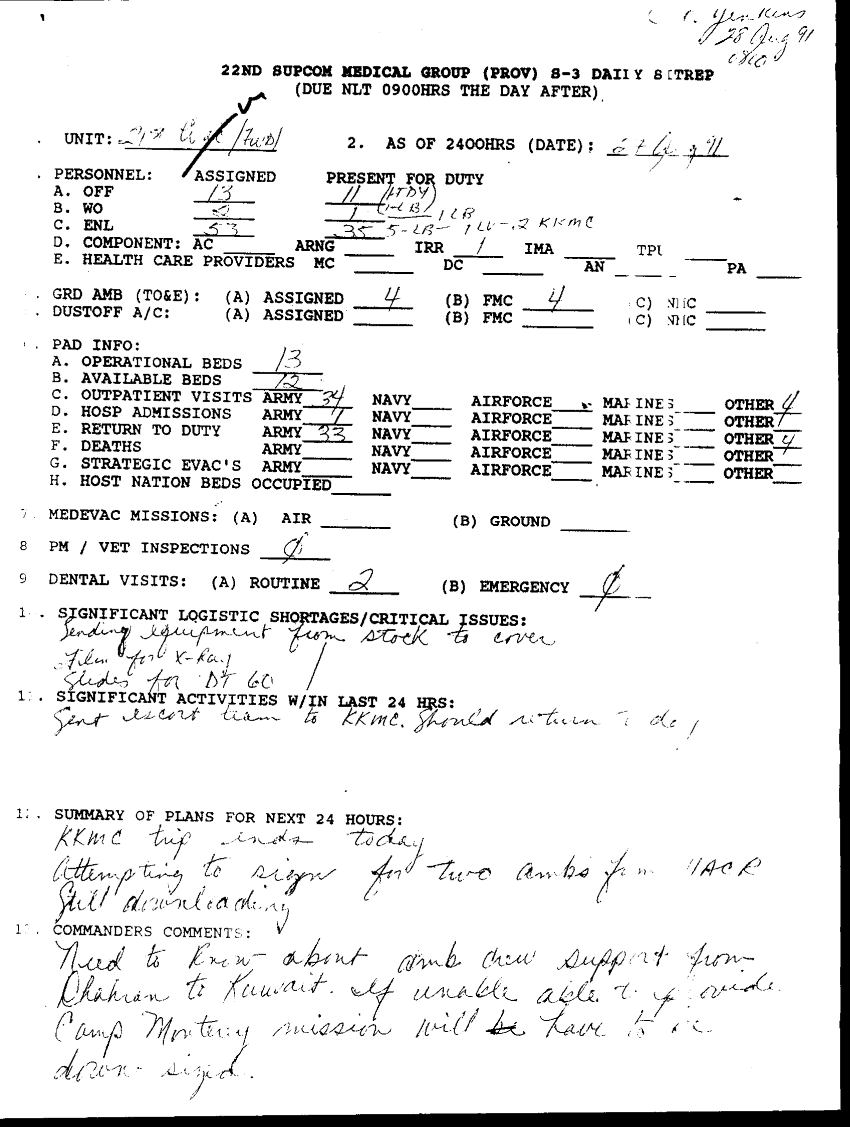 Yenkins
28 Aug 91
0810
22ND SUPCOM MEDICAL GROUP (PROV) S-3 DAILY SITREP
(DUE NLT 0900HRS THE DAY AFTER)
UNIT: (FWD) 2. AS OF 2400HRS (DATE): 27 Aug 91
PERSONNEL: ASSIGNED PRESENT FOR DUTY
A. OFF 13 11 (1TDY)
B. WO 1 1 LB
C. ENL 53 35 5-LB- KKMC
D. COMPONENT: AC ARNG IRR 1 IMA TPU
E. HEALTH CARE PROVIDERS MC DC AN PA
GRD AMB (TO&E): (A) ASSIGNED 4 (B) FMC 4 (C) NMC
DUSTOFF A/C: (A) ASSIGNED (B) FMC (C) NMC
PAD INFO:
A. OPERATIONAL BEDS 13
B. AVAILABLE BEDS 12
C. OUTPATIENT VISITS ARMY 34 NAVY AIRFORCE MARINES OTHER 4
D. HOSP ADMISSIONS ARMY 1 NAVY AIRFORCE MARINES OTHER
E. RETURN TO DUTY ARMY 33 NAVY AIRFORCE MARINES OTHER 4
F. DEATHS ARMY NAVY AIRFORCE MARINES OTHER
G. STRATEGIC EVAC'S ARMY NAVY AIRFORCE MARINES OTHER
H. HOST NATION BEDS OCCUPIED
7. MEDEVAC MISSIONS: (A) AIR (B) GROUND
8 PM / VET INSPECTIONS 0
9 DENTAL VISITS: (A) ROUTINE 2 (B) EMERGENCY 0
SIGNIFICANT LOGISTIC SHORTAGES/CRITICAL ISSUES:
Sending equipment from stock to cover
Film for X-Ray
Slides for DT 60
SIGNIFICANT ACTIVITIES W/IN LAST 24 HRS:
Sent escort team to KKMC. Should return today
SUMMARY OF PLANS FOR NEXT 24 HOURS:
KKMC trip ends today
Attempting to sign for two ambs from 11ACR
Still downloading
COMMANDERS COMMENTS:
Need to know about amb crew support from
Dhahran to Kuwait. If unable able to provide
Camp Monterey mission will be have to be
down-sized.